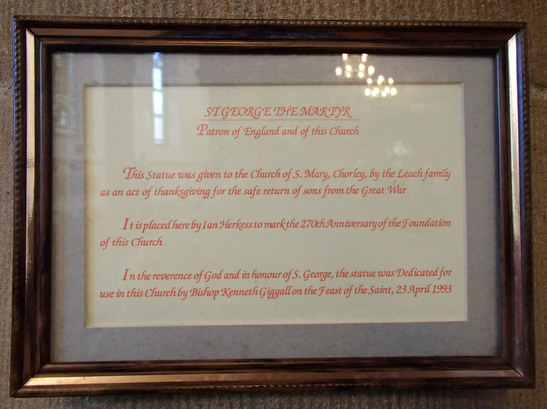 ST GEORGE THE MARTYR
Patron of England and of this Church
This Statue was given to the Church of S. Mary, Chorley, by the Leach family
as an act of thanksgiving for the safe return of sons from the Great War
It is placed here by Ian Herkess to mark the 270th Anniversary of the Foundation
of this Church
In the reverence of God and in honour of S. George, the statue was Dedicated for
use in this Church by Bishop Kenneth Giggall on the Feast of the Saint, 23 April 1993